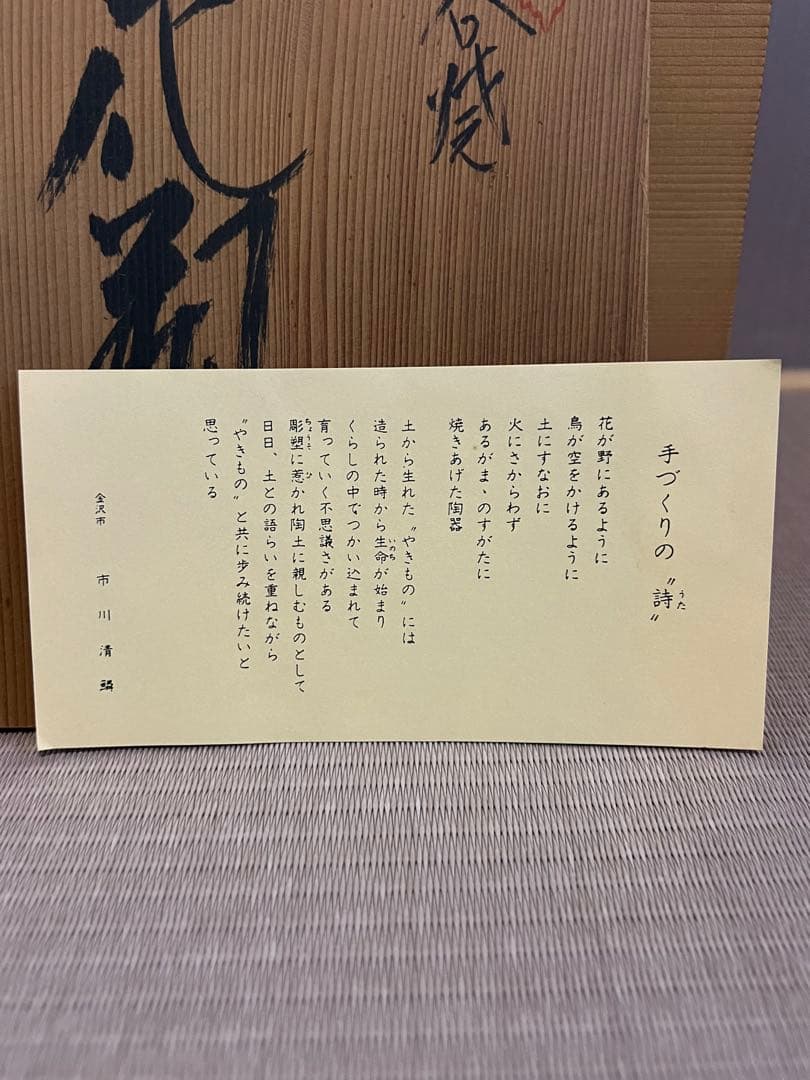 谷焼
花瓶
手づくりの〝詩〟
うた
花が野にあるように
鳥が空をかけるように
土にすなおに
火にさからわず
あるがまゝのすがたに
焼きあげた陶器
土から生れた〝やきもの〟には
造られた時から生命が始まり
いのち
くらしの中でつかい込まれて
育っていく不思議さがある
彫塑に惹かれ陶土に親しむものとして
ちょうそ ひ
日日、土との語らいを重ねながら
〝やきもの〟と共に歩み続けたいと
思っている
金沢市 市川清鱗